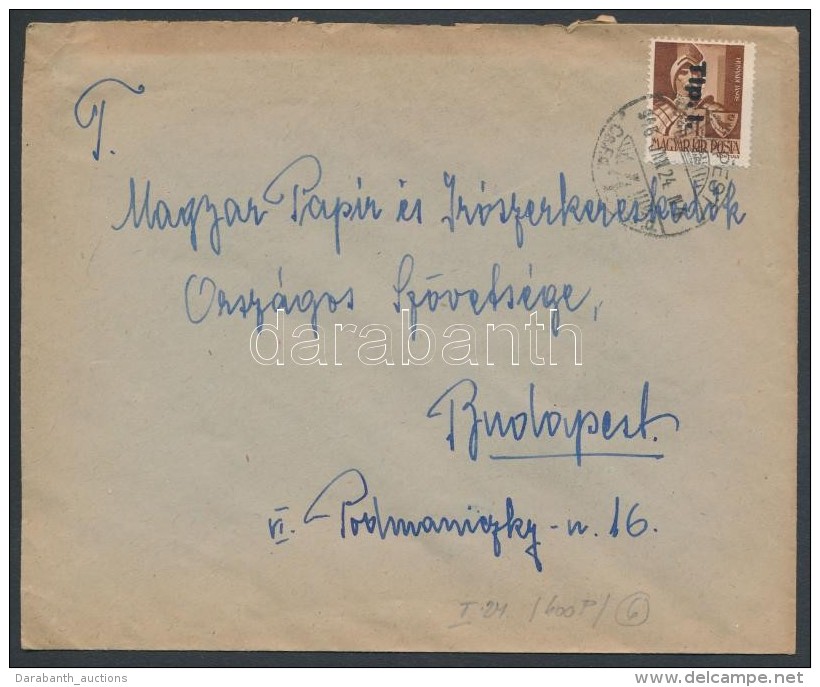 Tlp. 1.
MAGYAR KIR. POSTA
T.
Magyar Papír és Irószerkereskedők
Országos Szövetsége,
darabanth
Budapest.
VI. Podmaniczky-u. 16.
I 24 /600P/ 6
Darabanth_auctions
www.delcampe.net